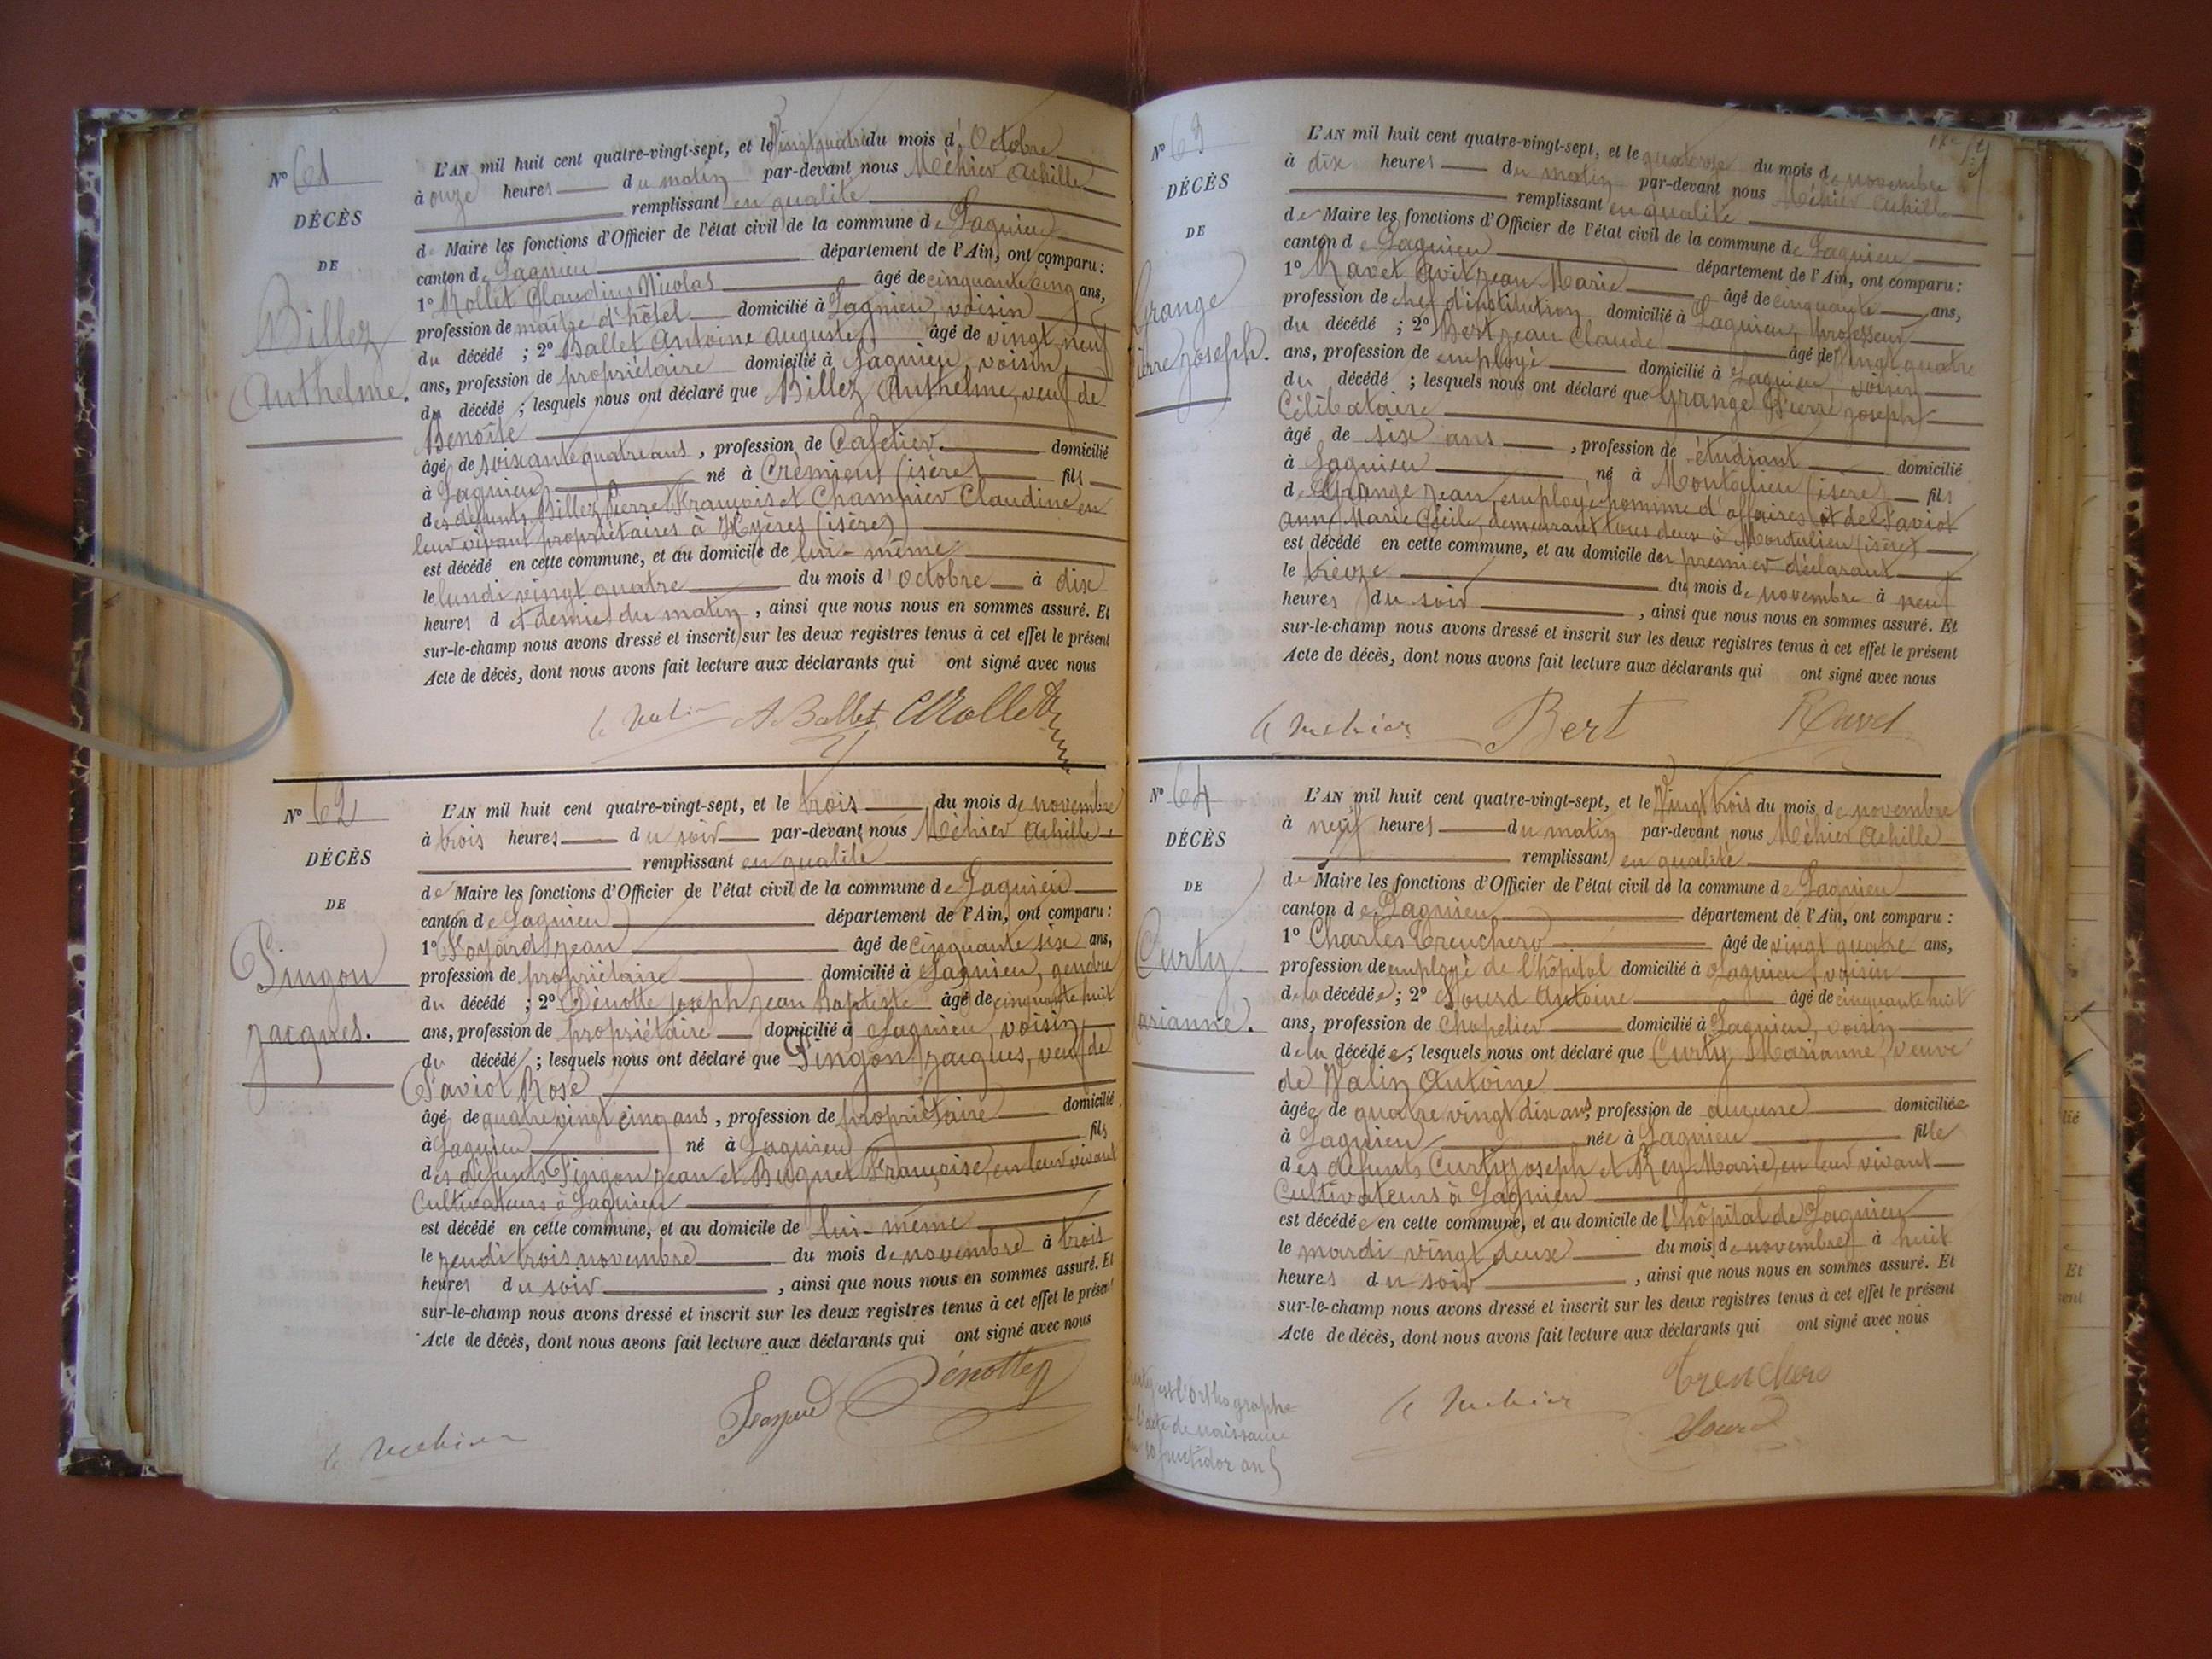 N° 61
DÉCÈS
DE
Billez
Anthelme.
L'AN mil huit cent quatre-vingt-sept, et le vingt quatre du mois d'Octobre
à onze heures du matin par-devant nous Méhier Achille
remplissant en qualité
de Maire les fonctions d'Officier de l'état civil de la commune de Lagnieu
canton de Lagnieu département de l'Ain, ont comparu :
1° Rollet Claudius Nicolas âgé de cinquante cinq ans,
profession de maître d'hôtel domicilié à Lagnieu, voisin
du décédé ; 2° Ballet Antoine Auguste âgé de vingt neuf
ans, profession de propriétaire domicilié à Lagnieu, voisin
du décédé ; lesquels nous ont déclaré que Billez Anthelme, veuf de
Benoîte
âgé de soixante quatre ans, profession de Cafetier domicilié
à Lagnieu né à Crémieu (isère) fils
des défunts Billez Pierre François et Champier Claudine en
leur vivant propriétaires à Hyères (isère)
est décédé en cette commune, et au domicile de lui-même
le lundi vingt quatre du mois d'octobre à dix
heures d et demie du matin, ainsi que nous nous en sommes assuré. Et
sur-le-champ nous avons dressé et inscrit sur les deux registres tenus à cet effet le présent
Acte de décès, dont nous avons fait lecture aux déclarants qui ont signé avec nous
A Ballet CRollet
N° 62
DÉCÈS
DE
Pingon
Jacques.
L'AN mil huit cent quatre-vingt-sept, et le trois du mois de novembre
à trois heures du soir par-devant nous Méhier Achille
remplissant en qualité
de Maire les fonctions d'Officier de l'état civil de la commune de Lagnieu
canton de Lagnieu département de l'Ain, ont comparu :
1° Jean âgé de cinquante six ans,
profession de propriétaire domicilié à Lagnieu, gendre
du décédé ; 2° Dénotte Joseph Jean Baptiste âgé de cinquante huit
ans, profession de propriétaire domicilié à Lagnieu, voisin
du décédé ; lesquels nous ont déclaré que Pingon Jacques, veuf de
Paviot Rose
âgé de quatre vingt cinq ans, profession de propriétaire domicilié
à Lagnieu né à Lagnieu fils
des défunts Pingon Jean et Buguet Françoise, en leur vivant
Cultivateurs à Lagnieu
est décédé en cette commune, et au domicile de lui-même
le jeudi trois novembre du mois de novembre à trois
heures du soir, ainsi que nous nous en sommes assuré. Et
sur-le-champ nous avons dressé et inscrit sur les deux registres tenus à cet effet le présen
Acte de décès, dont nous avons fait lecture aux déclarants qui ont signé avec nous
Dénotte
A Mehier
N° 63
DÉCÈS
DE
Grange
ierre Joseph.
L'AN mil huit cent quatre-vingt-sept, et le quatorze du mois de novembre
à dix heures du matin par-devant nous Méhier Achille
remplissant en qualité
de Maire les fonctions d'Officier de l'état civil de la commune de Lagnieu
canton de Lagnieu département de l'Ain, ont comparu :
1° Ravet Avit Jean Marie âgé de cinquante ans,
profession de chef d'institution domicilié à Lagnieu, professeur
du décédé ; 2° Bert Jean Claude âgé de vingt quatre
ans, profession de employé domicilié à Lagnieu, voisin
du décédé ; lesquels nous ont déclaré que Grange Pierre Joseph
Célibataire
âgé de six ans, profession de étudiant domicilié
à Lagnieu né à Montalieu (isère) fils
de Grange Jean, employé homme d'affaires et de Paviot
Anne Marie Cécile, demeurant tous deux à Montalieu (isère)
est décédé en cette commune, et au domicile des premier déclarant
le treize du mois de novembre à neuf
heures du soir, ainsi que nous nous en sommes assuré. Et
sur-le-champ nous avons dressé et inscrit sur les deux registres tenus à cet effet le présent
Acte de décès, dont nous avons fait lecture aux déclarants qui ont signé avec nous
A Mehier Bert Ravet
N° 64
DÉCÈS
DE
Curty
arianne.
L'AN mil huit cent quatre-vingt-sept, et le vingt trois du mois de novembre
à neuf heures du matin par-devant nous Méhier Achille
remplissant en qualité
de Maire les fonctions d'Officier de l'état civil de la commune de Lagnieu
canton de Lagnieu département de l'Ain, ont comparu :
1° Charles Trenchero âgé de vingt quatre ans,
profession de employé de l'hôpital domicilié à Lagnieu, voisin
de la décédée ; 2° Sourd Antoine âgé de cinquante huit
ans, profession de Chapelier domicilié à Lagnieu, voisin
de la décédée ; lesquels nous ont déclaré que Curty Marianne, veuve
de Valin Antoine
âgée de quatre vingt dix ans, profession de aucune domiciliée
à Lagnieu née à Lagnieu fille
des défunts Curty Joseph et Rey Marie, en leur vivant
Cultivateurs à Lagnieu
est décédée en cette commune, et au domicile de l'hôpital de Lagnieu
le mardi vingt deux du mois de novembre à huit
heures du soir, ainsi que nous nous en sommes assuré. Et
sur-le-champ nous avons dressé et inscrit sur les deux registres tenus à cet effet le présent
Acte de décès, dont nous avons fait lecture aux déclarants qui ont signé avec nous
est l'orthographe
de naissance
10 fructidor an 5
A Mehier Trenchero
Sourd